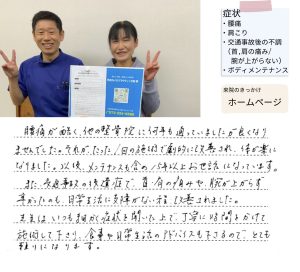 症状
・腰痛
・肩こり
・交通事故後の不調
(首,肩の痛み/
腕が上がらない)
・ボディメンテナンス
来院のきっかけ
ホームページ
腰痛が酷く、他の整骨院に何年も通っていましたが良くなり
ませんでした。それが、たった1日の施術で劇的に改善され、体が楽に
なりました。以後、メンテナンスも含め15年以上お世話になっています。
また、交通事故の後遺症で、首・肩の痛みや、腕が上がらず
辛かったのも、日常生活に支障がない程、改善されました。
先生はいつも細かく症状を聞いた上で、丁寧に時間をかけて
施術して下さり、食事や日常生活のアドバイスも下さるので、とても
頼りになります。